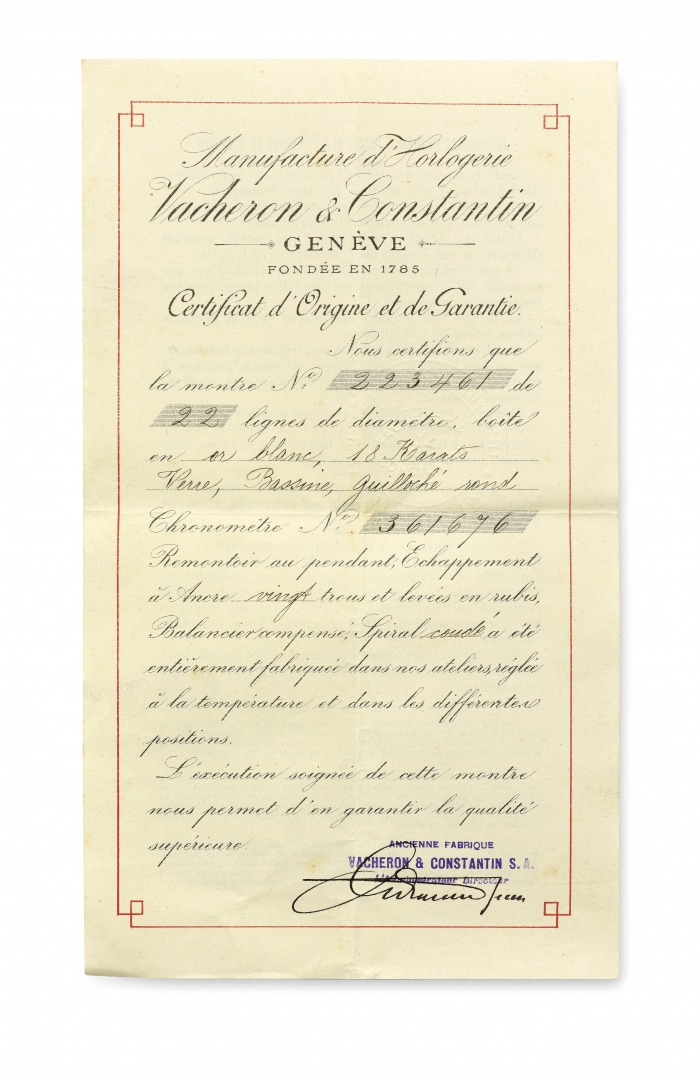 Manufacture d'Horlogerie
Vacheron & Constantin
GENÈVE
FONDÉE EN 1785
Certificat d'Origine et de Garantie.
Nous certifions que
la montre Nº 223461 de
22 lignes de diamètre, boîte
en or blanc, 18 Karats
Verre, Bassine, Guilloché rond
Chronomètre Nº 361676
Remontoir au pendant, Echappement
à Ancre vingt trous et levées en rubis,
Balancier compensé, Spiral coudé a été
entièrement fabriquée dans nos ateliers, réglée
à la température et dans les différentes
positions.
L'exécution soignée de cette montre
nous permet d'en garantir la qualité
supérieure.
ANCIENNE FABRIQUE
VACHERON & CONSTANTIN S.A.
Directeur